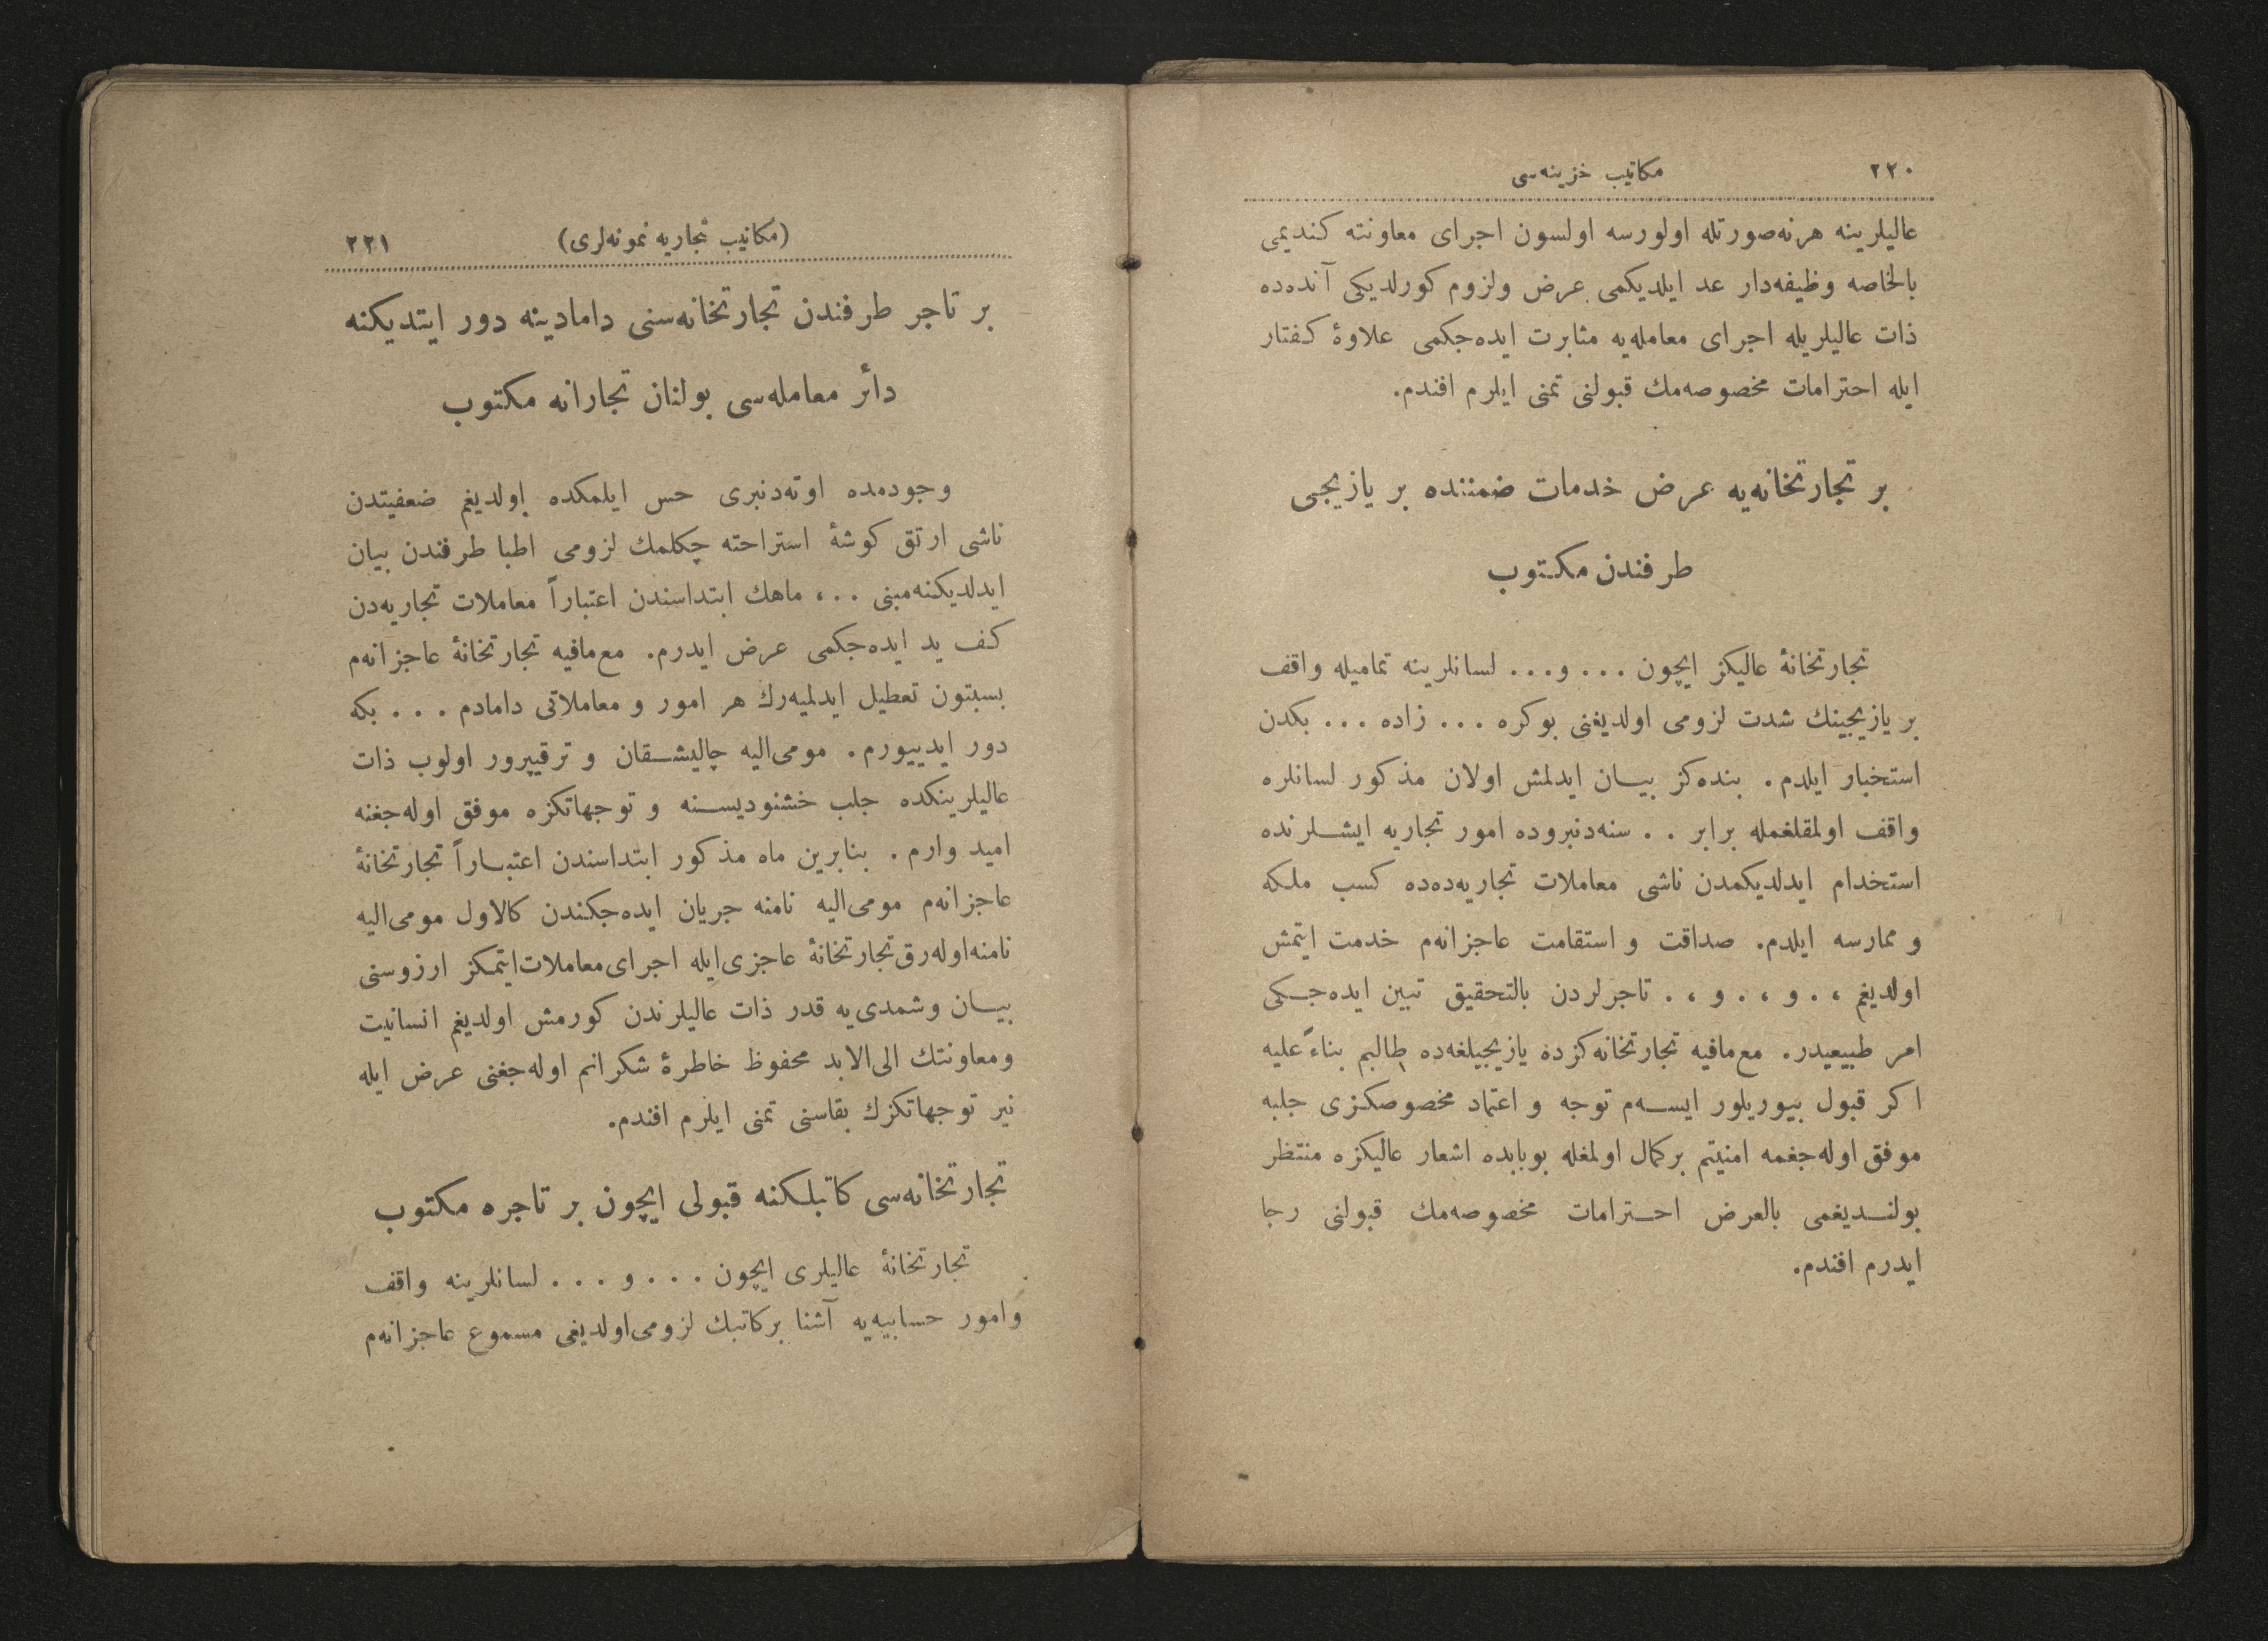 ٢٢٠
مكاتيب خزينه‌سی
عاليلرينه هرنه‌صورتله اولورسه اولسون اجرای معاونته كنديمی
بالخاصه وظيفه‌دار عد ايلديكمی عرض ولزوم كورلديكی آنده‌ده
ذات عاليلريله اجرای معامله‌يه مثابرت ايده‌جكمی علاوۀ كفتار
ايله احترامات مخصوصه‌مك قبولنی تمنی ايلرم افندم.
بر تجارتخانه‌يه عرض خدمات ضمننده بر يازيجی
طرفندن مكتوب
تجارتخانۀ عاليكز ايچون ... و... لسانلرينه تماميله واقف
بر يازيجينك شدت لزومی اولديغنی بوكره ... زاده ... بكدن
استخبار ايلدم. بنده‌كز بيان ايدلمش اولان مذكور لسانلره
واقف اولمقلغمله برابر .. سنه‌دنبروده امور تجاريه ايشلرنده
استخدام ايدلديكمدن ناشی معاملات تجاريه‌ده‌ده كسب ملكه
و ممارسه ايلدم. صداقت و استقامت عاجزانه‌م خدمت ايتمش
اولديغم ، . و ، . و ، . تاجرلردن بالتحقيق تبين ايده‌جكی
امر طبيعيدر. مع‌مافيه تجارتخانه‌كزده يازيجيلغه‌ده طالبم بناءً عليه
اكر قبول بيوريلور ايسه‌م توجه و اعتماد مخصوصكزی جلبه
موفق اوله‌جغمه امنيتم بركمال اولمغله بوبابده اشعار عاليكزه منتظر
بولنديغمی بالعرض احترامات مخصوصه‌مك قبولنی رجا
ايدرم افندم.
(مكاتيب تجاريه نمونه‌لری)
٢٢١
بر تاجر طرفندن تجارتخانه‌سنی دامادينه دور ايتديكنه
دائر معامله‌سی بولنان تجارانه مكتوب
وجودمده اوته‌دنبری حس ايلمكده اولديغم ضعفيتدن
ناشی ارتق كوشۀ استراحته چكلمك لزومی اطبا طرفندن بيان
ايدلديكنه‌مبنی ..، ماهك ابتداسندن اعتباراً معاملات تجاريه‌دن
كف يد ايده‌جكمی عرض ايدرم. مع‌مافيه تجارتخانۀ عاجزانه‌م
بسبتون تعطيل ايدلميه‌رك هر امور و معاملاتی دامادم ... بكه
دور ايدييورم. مومی‌اليه چاليشقان و ترقيپرور اولوب ذات
عاليلرينكده جلب خشنوديسنه و توجهاتكزه موفق اوله‌جغنه
اميد وارم. بنابرين ماه مذكور ابتداسندن اعتباراً تجارتخانۀ
عاجزانه‌م مومی‌اليه نامنه جريان ايده‌جكندن كالاول مومی‌اليه
نامنه‌اوله‌رق‌تجارتخانۀ عاجزی‌ايله اجرای‌معاملات‌ايتمكز ارزوسنی
بيان وشمدی‌يه قدر ذات عاليلرندن كورمش اولديغم انسانيت
ومعاونتك الی‌الابد محفوظ خاطرۀ شكرانم اوله‌جغنی عرض ايله
نير توجهاتكزك بقاسنی تمنی ايلرم افندم.
تجارتخانه‌سی كاتبلكنه قبولی ايچون بر تاجره مكتوب
تجارتخانۀ عاليلری ايچون ... و ... لسانلرينه واقف
وامور حسابيه‌يه آشنا بركاتبك لزومی‌اولديغی مسموع عاجزانه‌م